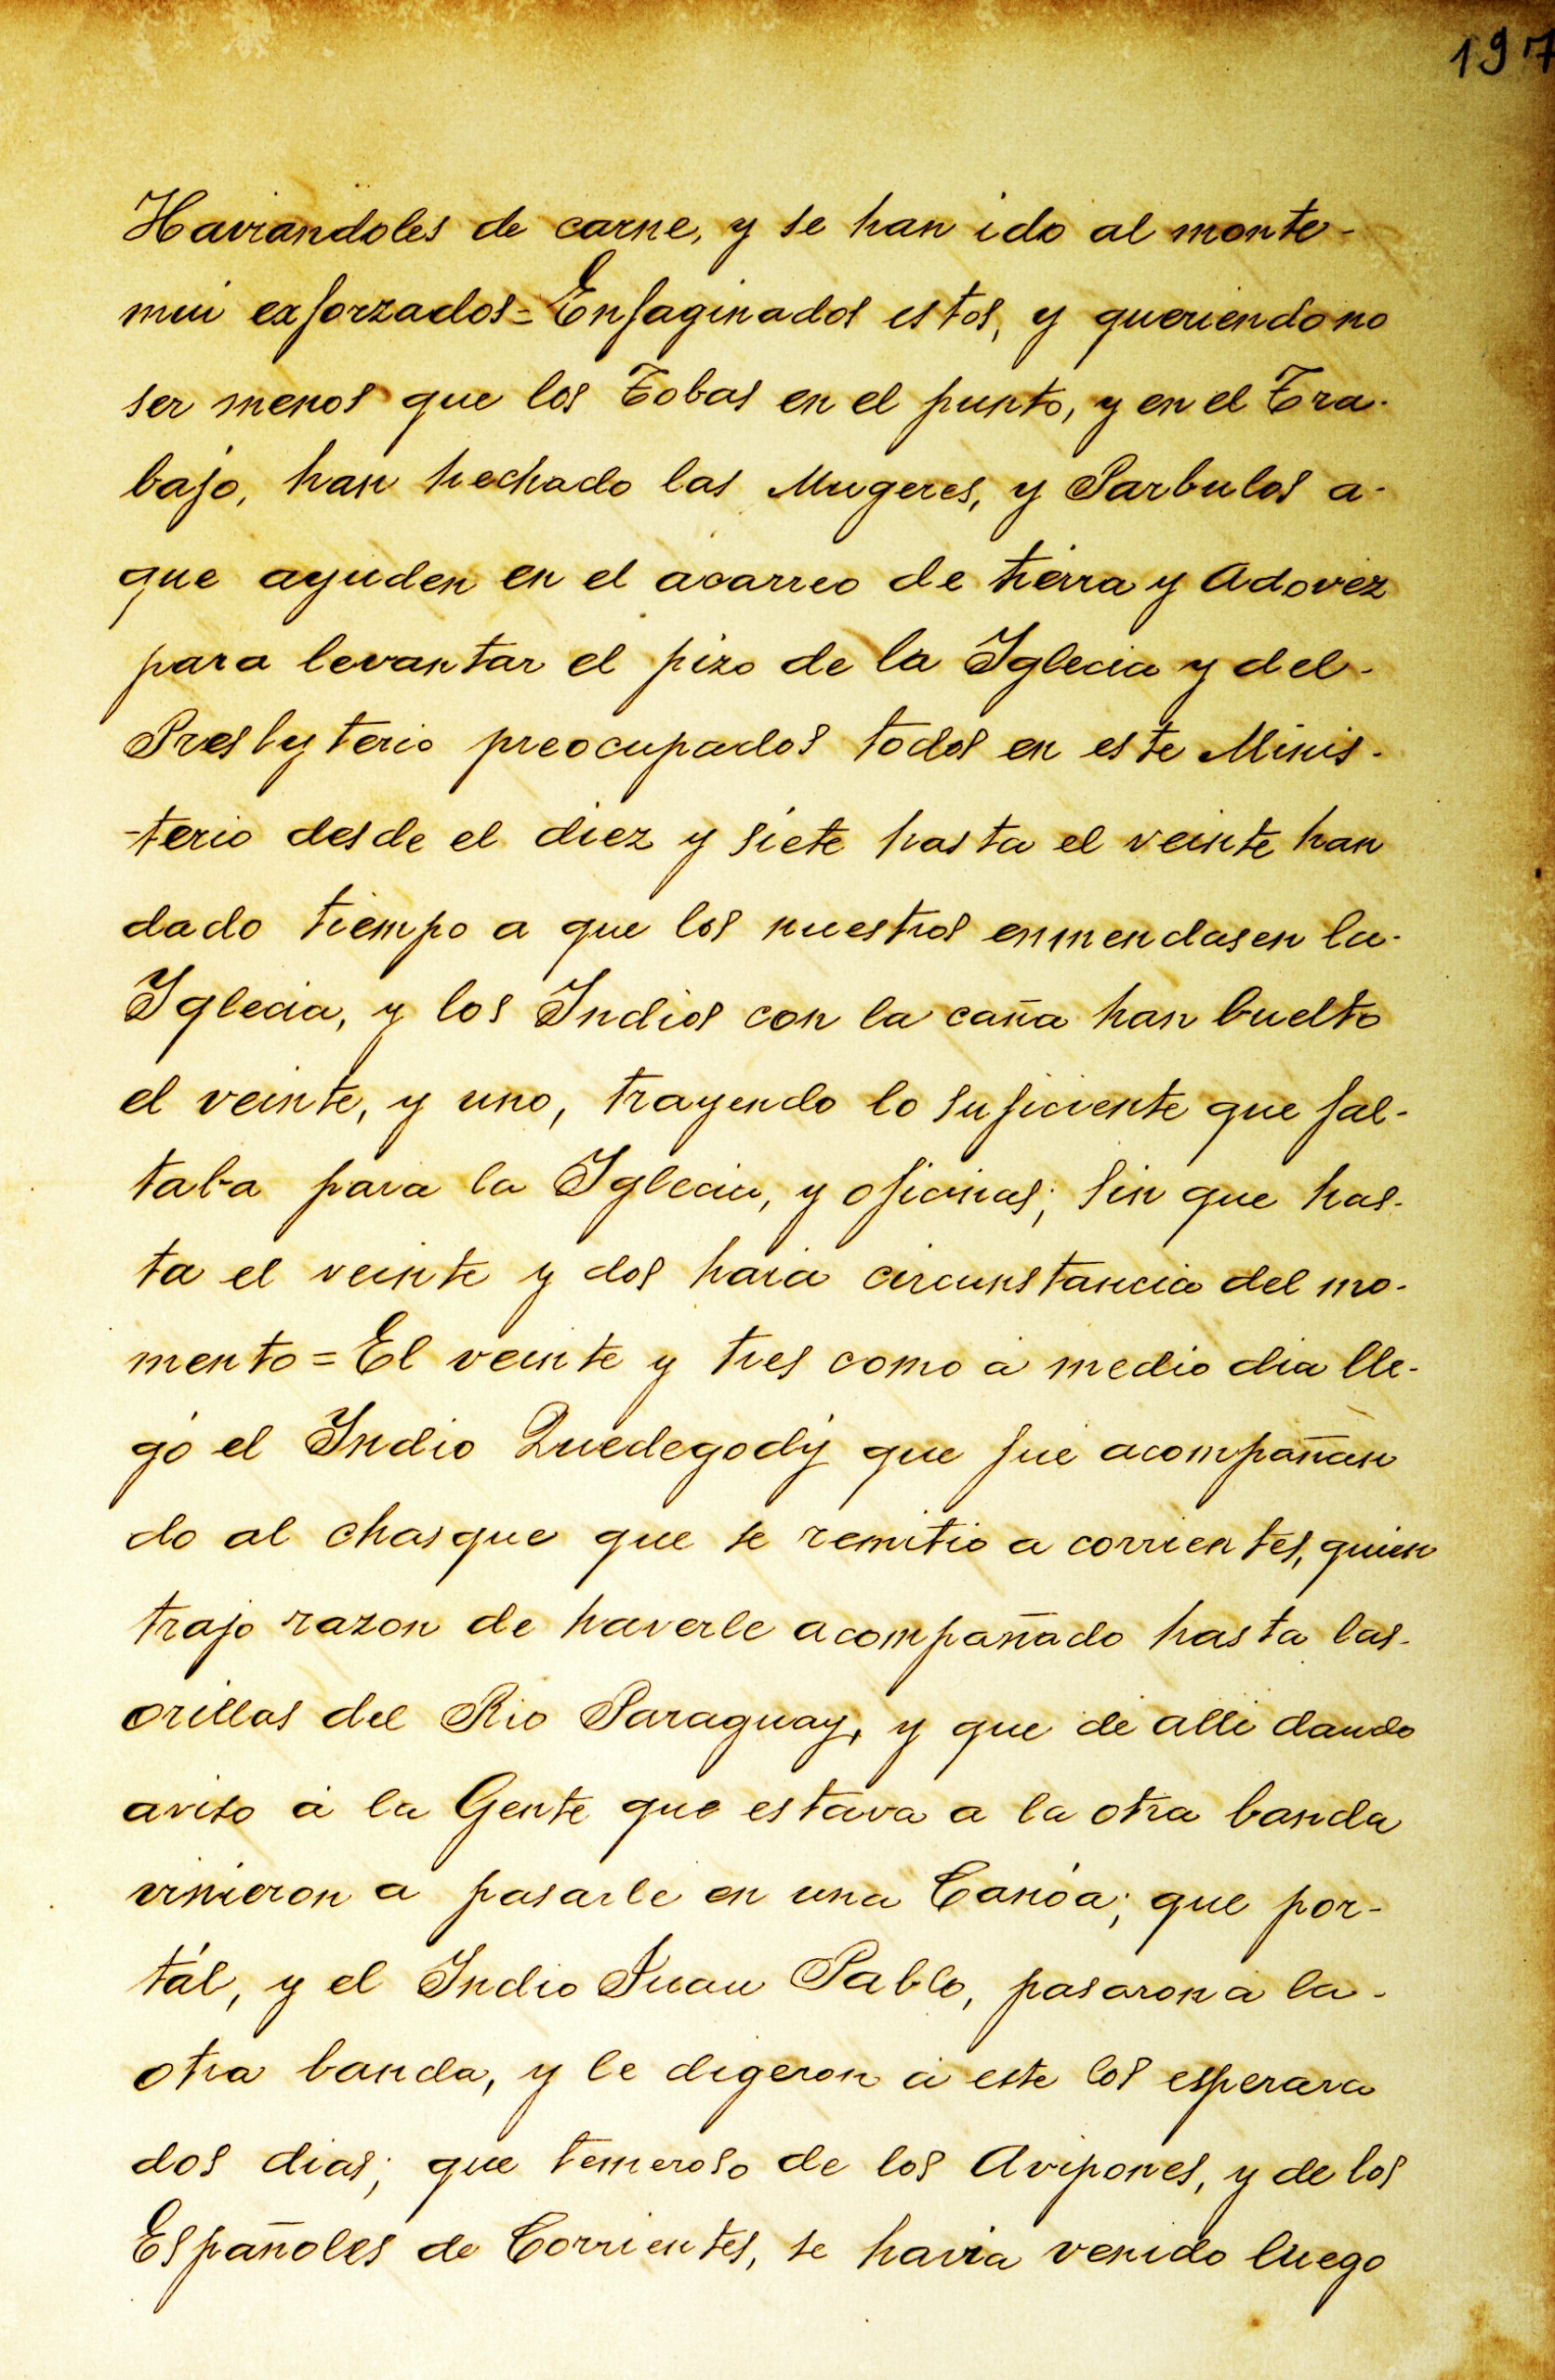 197
Haviandoles de carne, y se han ido al monte-
mui exforzados = Enfaginados estos, y queriendo no
ser menos que los Tobas en el punto, y en el Tra-
bajo, han hechado las Mugeres, y Parbulos a-
que ayuden en el acarreo de tierra y Adovez
para levantar el pizo de la Iglecia y del-
Presbyterio preocupados todos en este Minis-
-terio desde el diez y siete hasta el veinte han
dado tiempo a que los nuestros enmendasen la-
Iglecia, y los Indios con la caña han buelto
el veinte, y uno, trayendo lo suficiente que fal-
taba para la Iglecia, y oficinas; sin que has-
ta el veinte y dos haia circunstancia del mo-
mento = El veinte y tres como á medio dia lle-
gó el Indio Quedegodÿ que fue acompañan
do al chasque que se remitió a corrientes, quien
trajo razon de haverle acompañado hasta las-
orillas del Rio Paraguay, y que de alli dando
aviso á la Gente que estava a la otra banda
vinieron a pasarle en una Canóa; que por-
tál, y el Indio Juan Pablo, pasaron á la-
otra banda, y le digeron á este los esperara
dos dias; que temeroso de los Avipones, y de los
Españoles de Corrientes, se havia venido luego